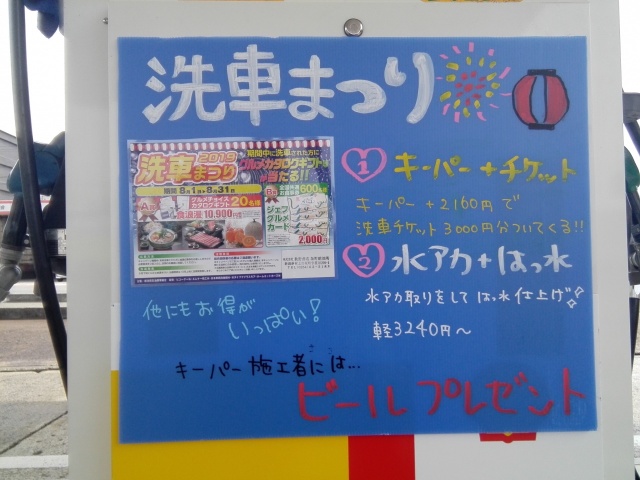 洗車まつり
洗車
2019
まつり
期間中に洗車された方に
グルメカタログギフト等
が当たる!!
期間 8月1日▶8月31日
A賞
グルメチョイス
カタログギフト
20名様
食浪漫 10,900円
B賞
600名様
ジェフ
グルメ
カード
2,000円
① キーパー+チケット
キーパー +2160円で
洗車チケット3000円分ついてくる!!
② 水アカ+はっ水
水アカ取りをして はっ水仕上げ
軽3240円〜
他にもお得が
いっぱい!
キーパー施工者には...
ビールプレゼント